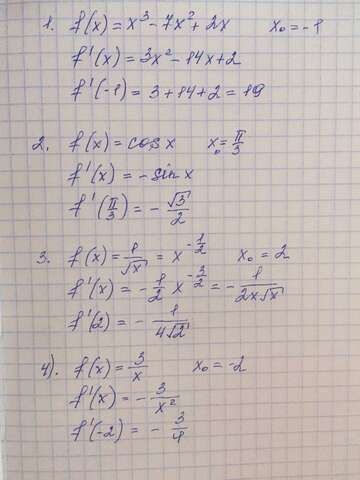 1. f(x) = x³ - 7x² + 2x x₀ = -1
f'(x) = 3x² - 14x + 2
f'(-1) = 3 + 14 + 2 = 19
2. f(x) = cos x x₀ = π/3
f'(x) = - sin x
f'(π/3) = - √3/2
3. f(x) = 1/√x = x^(-1/2) x₀ = 2
f'(x) = - 1/2 x^(-3/2) = - 1/(2x√x)
f'(2) = - 1/(4√2)
4). f(x) = 3/x x₀ = -2
f'(x) = - 3/x²
f'(-2) = - 3/4